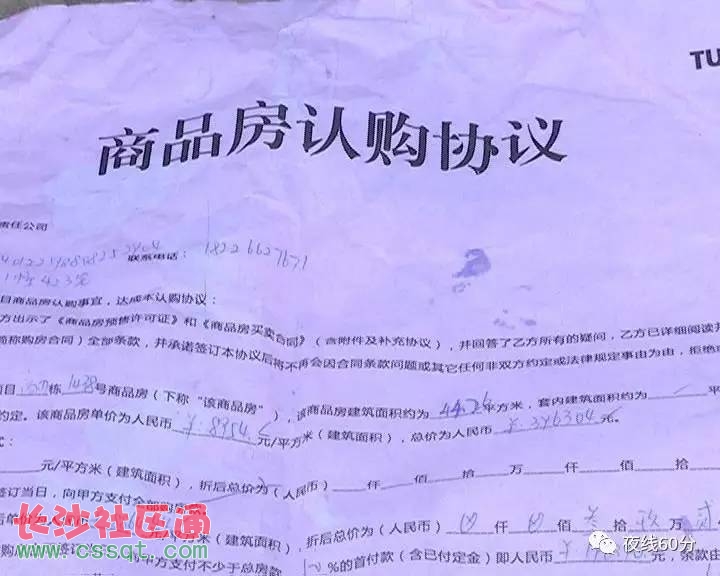 TU
商品房认购协议
责任公司
联系电话：18226627671
423室
目商品房认购事宜，达成本认购协议：
方出示了《商品房预售许可证》和《商品房买卖合同》（含附件及补充协议），并回答了乙方所有的疑问，乙方已详细阅读并
简称购房合同）全部条款，并承诺签订本协议后将不再会因合同条款问题或其它任何非双方约定或法律规定事由为由，拒绝或
项目 栋1438号商品房（下称“该商品房”），该商品房建筑面积约为44.26平方米，套内建筑面积约为 平方
约定。该商品房单价为人民币￥8954元/平方米（建筑面积），总价为人民币￥396304元。
式：
元/平方米（建筑面积），折后总价为（人民币） 仟 佰 拾 万 仟 佰 拾
签订当日，向甲方支付全部购房
后单价为人民币 元/平方米（建筑面积），折后总价为（人民币） 仟 佰叁拾玖万 贰
购房 签订 向甲方支付不少于总房款 %的首付款（含已付定金）即人民币 元，余款由
长沙社区通
www.cssqt.com
夜线60分